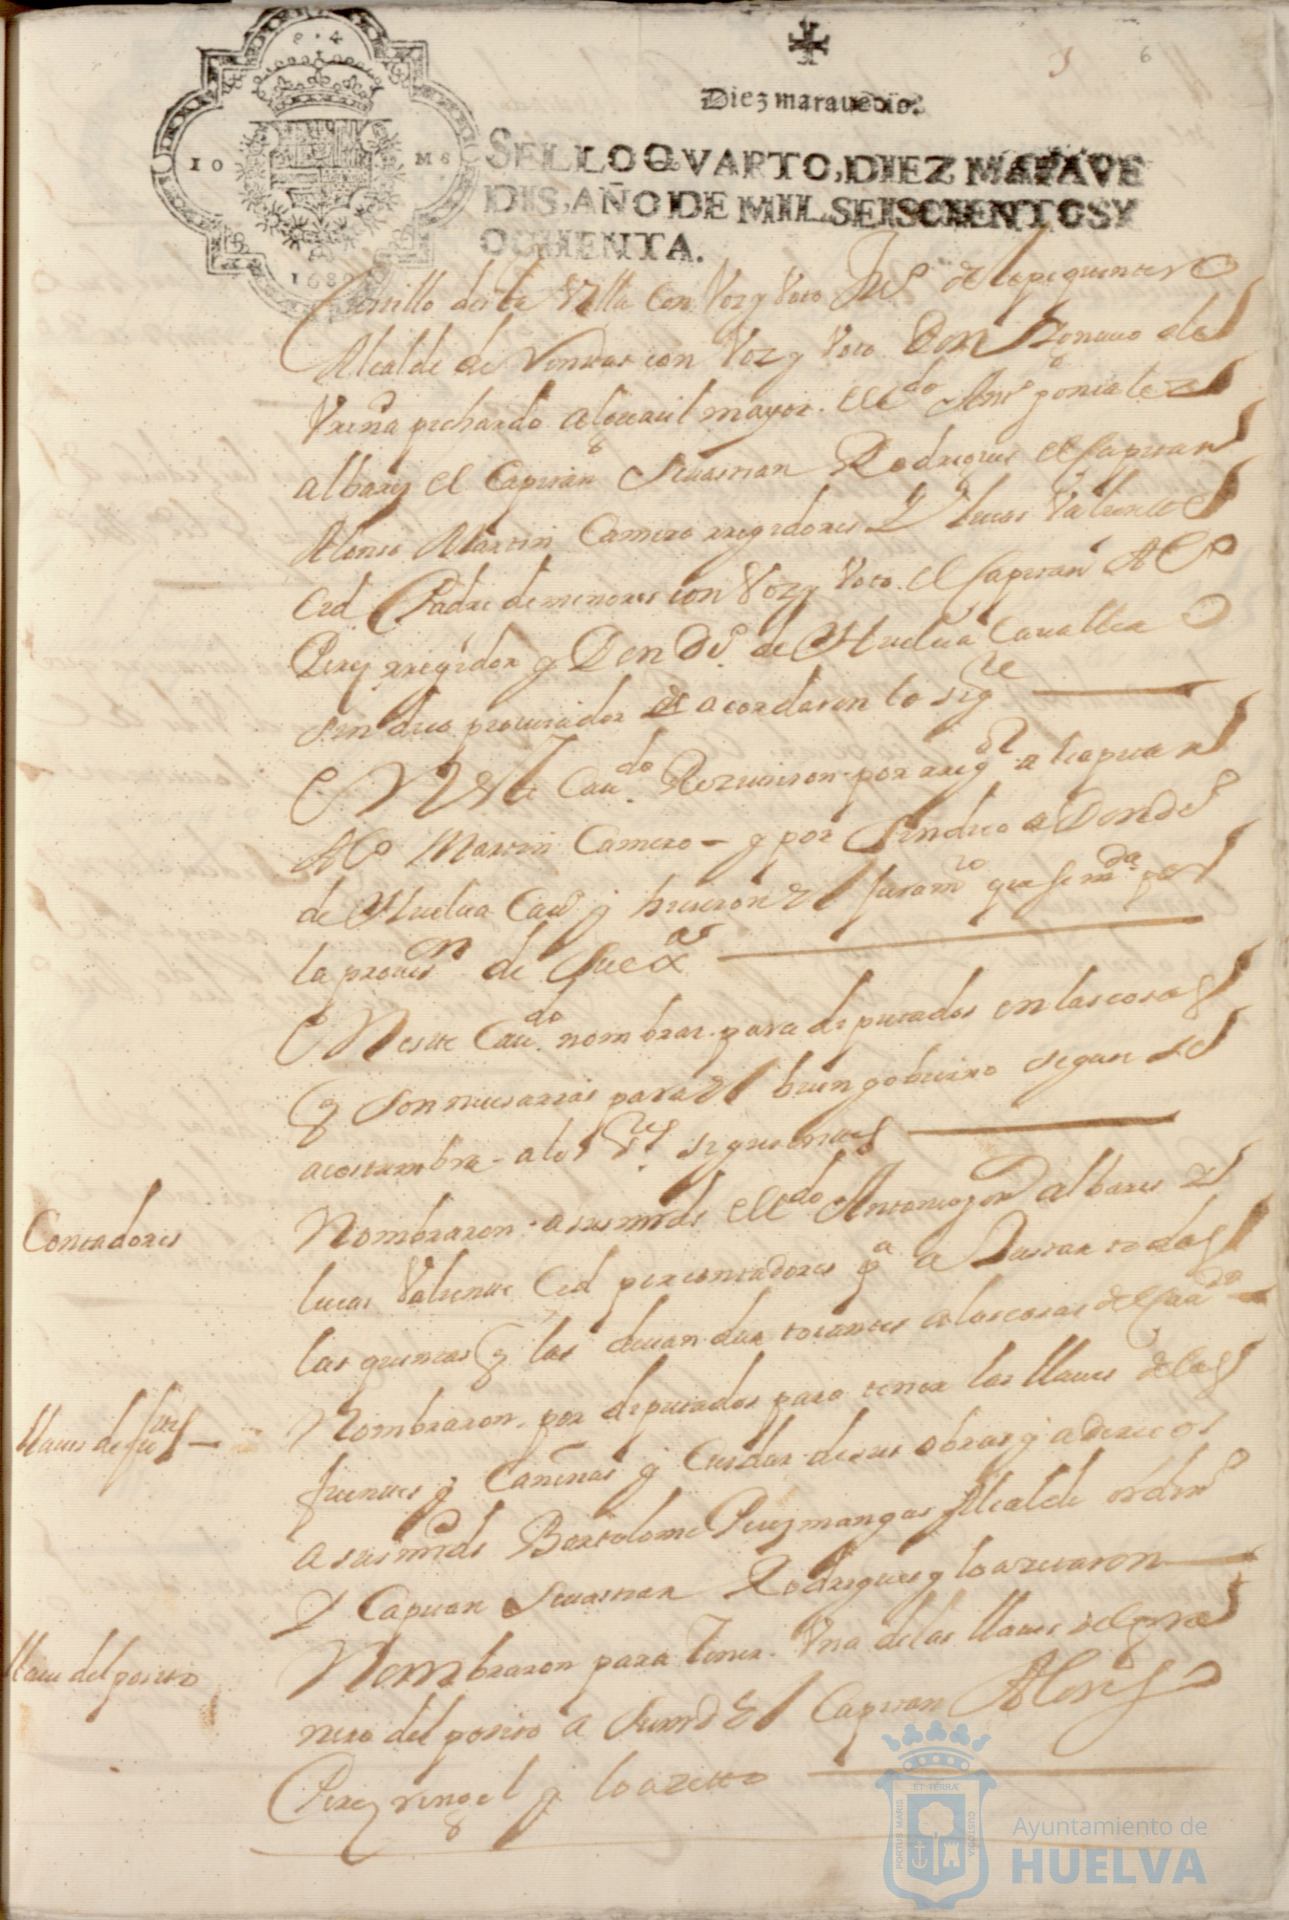 5 6
Diez maravedis.
SELLO QVARTO, DIEZ MARAVE
DIS, AÑO DE MIL SEISCIENTOS Y
OCHENTA.
10 MS
1680
Castillo desta Villa Con Voz y Voto Juº de lepe quintero
Alcalde de con Voz y Voto Don de
Vreña pechardo alguacil mayor. ellcdo Antº gonzalez
albarez el Capitan Seuastian Rodrigues el Capitan
Alonso Martin Camero rregidores Y lucas Valiente
Cid Padre de menores con Voz y Voto el Capitan Alº
Perez rregidor y Don Dº. de Huelua Cauallero
sindico procurador acordaron lo sigte
En este Caudo. Reciuieron por rregor al capitan
Alº Martin Camero - y por sindico a Don dº
de Huelua Cauº y hicieron el juramto que se mda por
la prouisn de su exa
En este Caudo. nombrar para diputados en las cosas
q son necesarias para el buen gobierno segun se
acostumbra - a los Sres siguientes
Contadores
Nombraron - a sus mrds ellcdo Antonio gon albares el
lucas Valiente Cid por contadores pa a Justar todas
las quentas q las deuan dar tocantes a las cosas del Caudo
llaues de fuetes
Nombraron por diputados para tener las llaues de las
fuentes y Cañerias y Cuidar de sus obras y aderecos
a sus mrds Bartolome Perez mangas Alcalde ordinº
Y Capitan Seuastian Rodrigues y lo azetaron
llaue del posito
Nombraron para Tener Vna de las llaues del gra
nero del posito a su md El Capitan Alonso
Perez rengel y lo azetto
PORTUS MARIS ET TERRÆ CUSTODIA
Ayuntamiento de
HUELVA